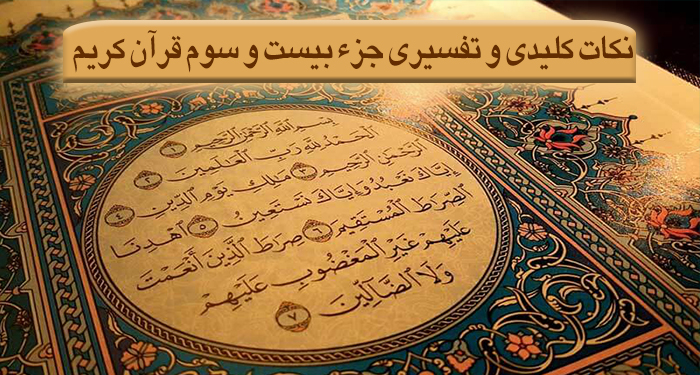 نکات کلیدی و تفسیری جزء بیست و سوم قرآن کریم
بِسْمِ اللَّهِ الرَّحْمَٰنِ الرَّحِيمِ ١
الْحَمْدُ لِلَّهِ رَبِّ الْعَالَمِينَ ٢
الرَّحْمَٰنِ الرَّحِيمِ ٣ مَالِكِ يَوْمِ الدِّينِ ٤
إِيَّاكَ نَعْبُدُ وَإِيَّاكَ نَسْتَعِينُ ٥ اهْدِنَا
الصِّرَاطَ الْمُسْتَقِيمَ ٦ صِرَاطَ الَّذِينَ أَنْعَمْتَ
عَلَيْهِمْ غَيْرِ الْمَغْضُوبِ عَلَيْهِمْ
وَلَا الضَّالِّينَ ٧